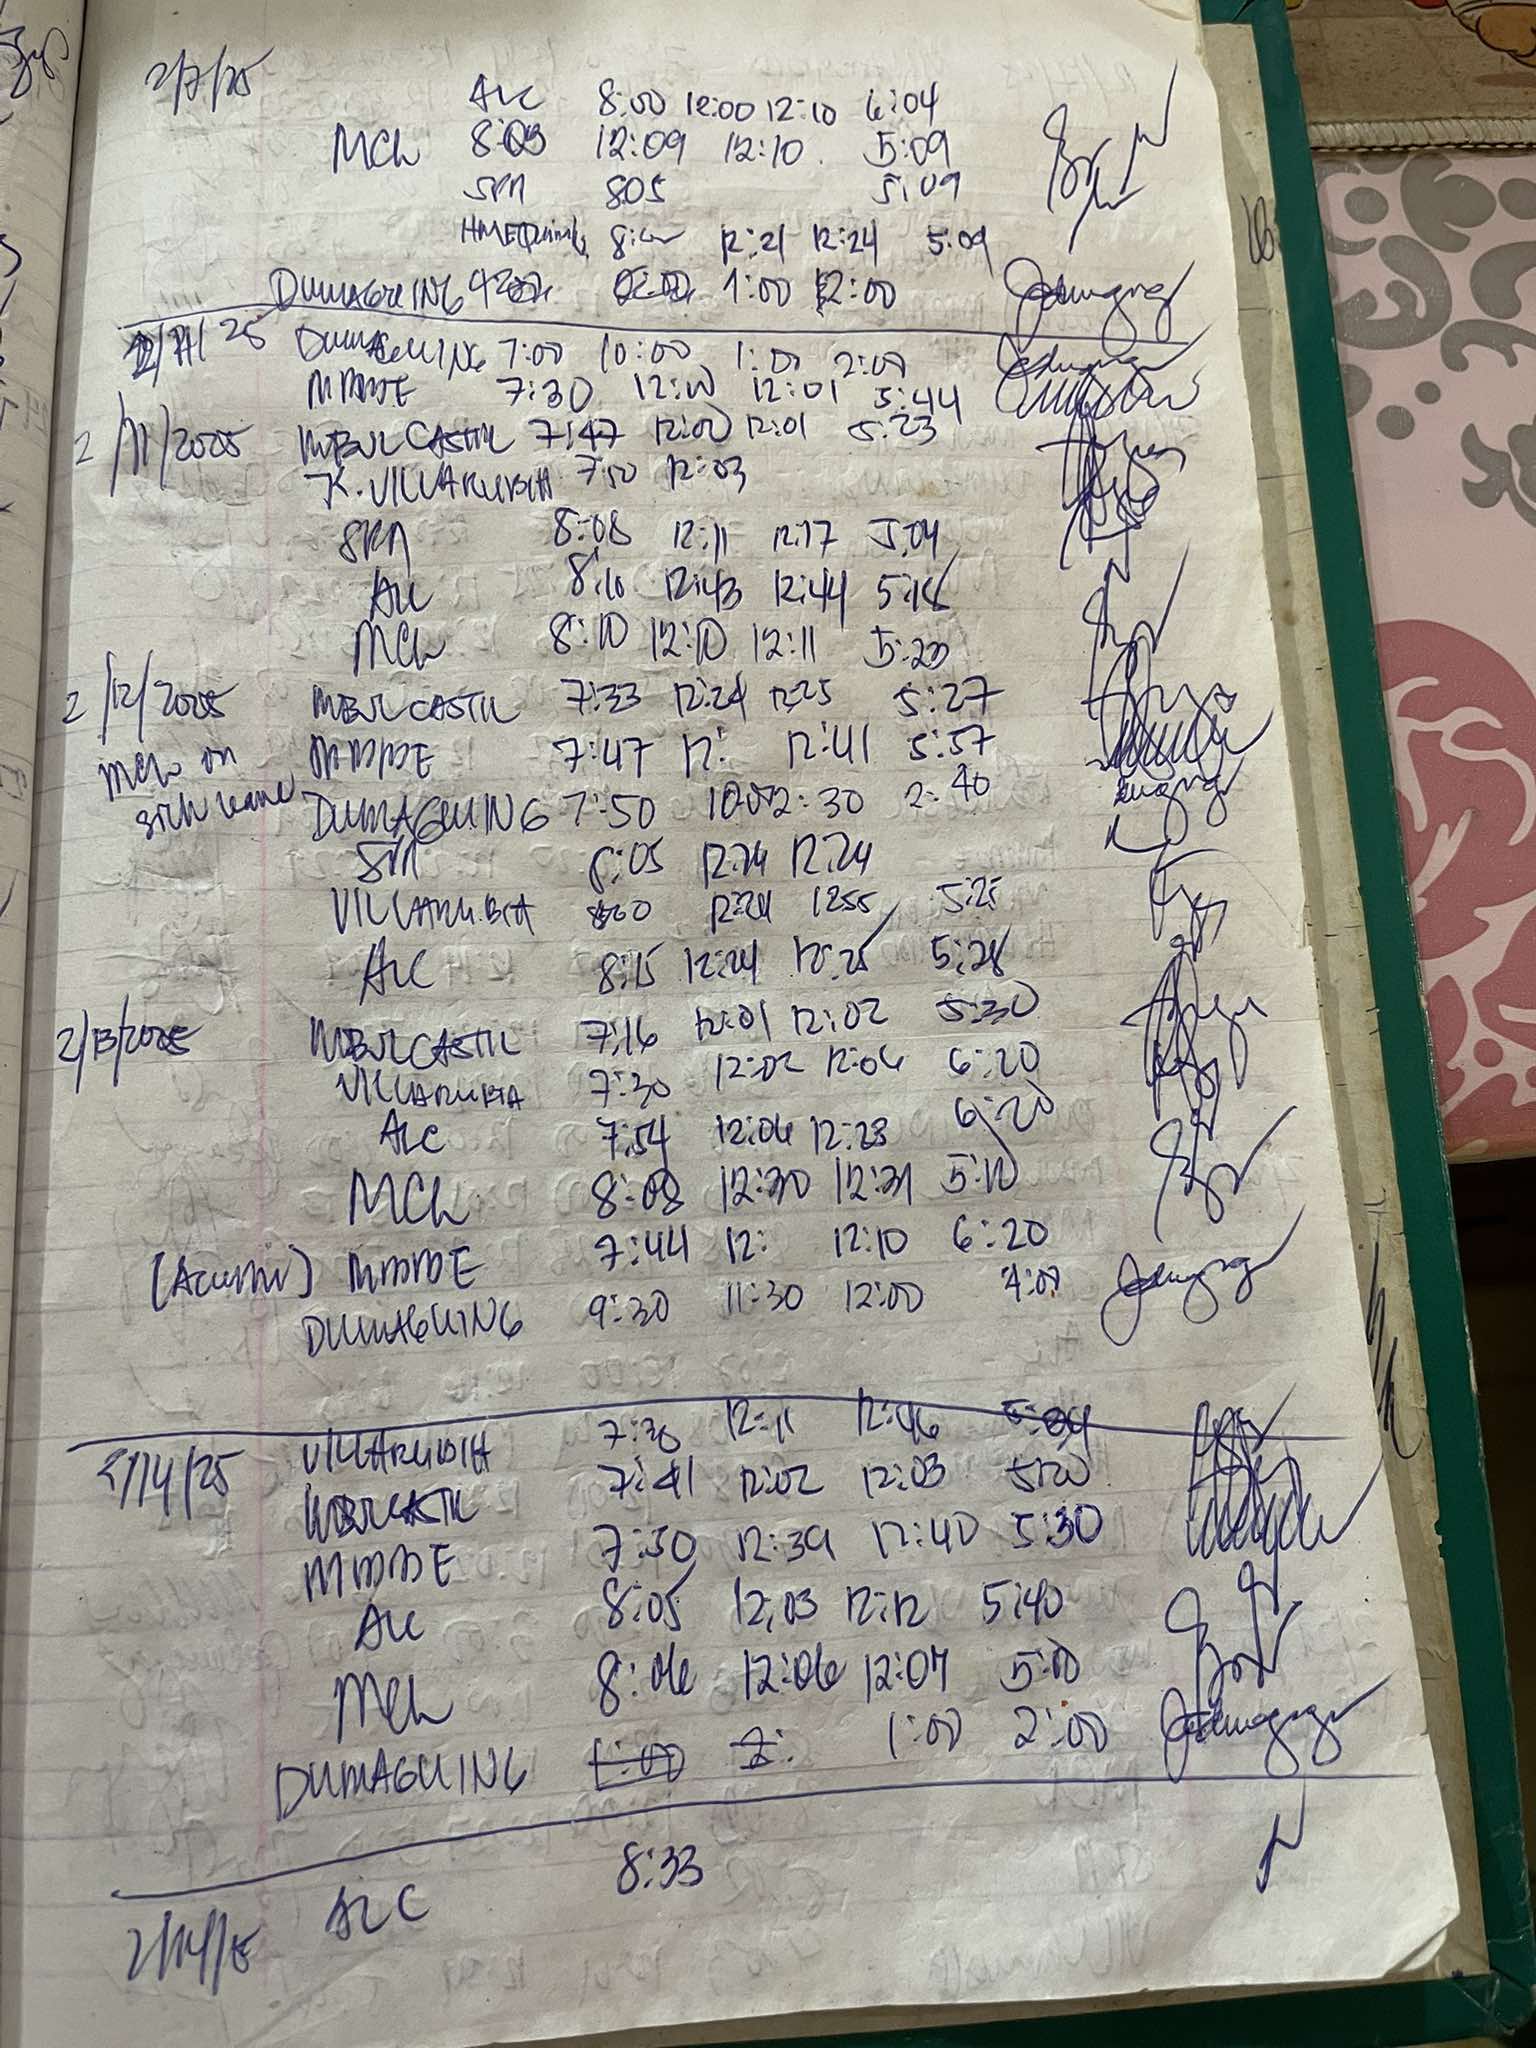 2/7/25
ALC 8:00 12:00 12:10 6:04
MCh 8:05 12:09 12:10 5:09
SRA 805 5:09
12:21 12:24 5:09
DUMAGUING 1:00 2:00
25 DUMAGUING 7:00 10:00 1:00 2:00
7:30 12:00 12:01 5:44
2/11/2025 MBJLCASTIL 7:47 12:00 12:01 5:23
K. VILLARUBIA 7:50 12:03
SRA 8:08 12:11 12:17 5:04
ALC 8:10 12:43 12:44 5:18
MCh 8:10 12:10 12:11 5:20
2/12/2025 MBJLCASTIL 7:33 12:24 12:25 5:27
MCh on 7:47 12: 12:41 5:57
sick leave DUMAGUING 7:50 10:00 2:30 2:40
SRA 8:05 12:24 12:24
VILLARUBIA 12:24 1255 5:25
ALC 8:15 12:24 12:25 5:28
2/13/2025 MBJLCASTIL 7:16 12:01 12:02 5:30
VILLARUBIA 7:30 12:02 12:06 6:20
ALC 7:54 12:06 12:28 6:20
MCh 8:08 12:30 12:31 5:10
7:44 12: 12:10 6:20
DUMAGUING 9:30 11:30 12:00 4:00
VILLARUBIA 7:30 12:11 12:46 5:04
2/14/25 MBJLCASTIL 7:41 12:02 12:03 5:20
7:50 12:39 12:40 5:30
ALC 8:05 12:03 12:12 5:40
MCh 8:06 12:06 12:07 5:00
DUMAGUING 1:00 2: 1:00 2:00
ALC 8:33